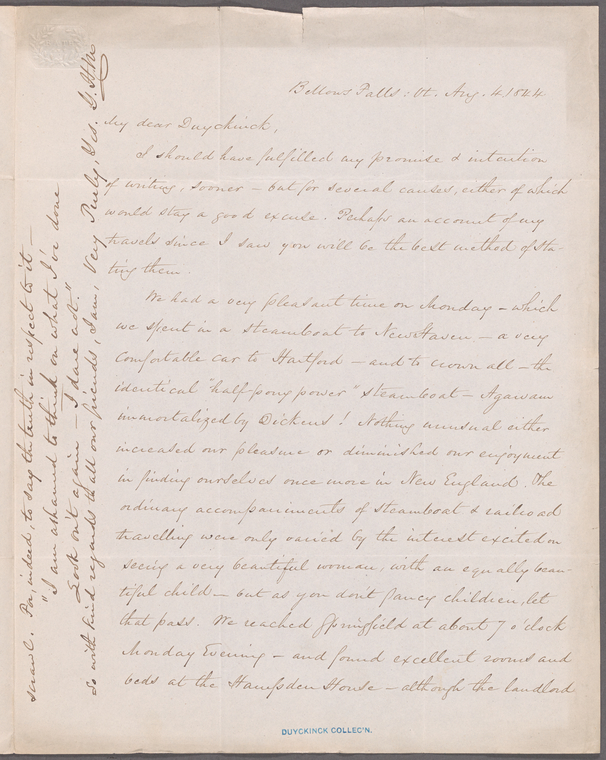 Bellows Falls: Vt. Aug. 4. 1844.
My dear Duyckinck,
I should have fulfilled my promise & intention
of writing, sooner — but for several causes, either of which
would stay a good excuse. Perhaps an account of my
travels since I saw you will be the best method of sta-
ting them.
We had a very pleasant time on Monday — which
we spent in a steamboat to New Haven — a very
comfortable car to Hartford — and to crown all — the
identical "half-pony power" steamboat — Agawam
immortalized by Dickens! Nothing unusual either
increased our pleasure or diminished our enjoyment
in finding ourselves once more in New England. The
ordinary accompaniments of steamboat & railroad
travelling were only varied by the interest excited on
seeing a very beautiful woman, with an equally beau-
tiful child — but as you don't fancy children, let
that pass. We reached Springfield at about 7 o'clock
Monday Evening — and found excellent rooms and
beds at the Hampden House — although the landlord
scrawl. For, indeed, to say the truth in respect to it —
"I am ashamed to think on what I've done
Look on't again — I dare not."
So with kind regards to all our friends, I am, Very Truly, Yrs.
DUYCKINCK COLLEC'N.